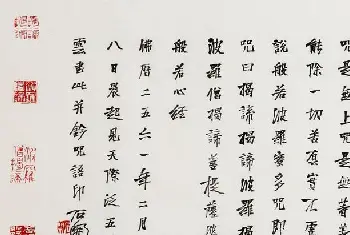 咒是無上咒是無等等
能除一切苦真實不虛
說般若波羅蜜多咒即
咒曰揭諦揭諦波羅揭
波羅僧揭諦菩提薩婆
般若心經
佛曆二五六一年二月
八日晨起見天際泛五
雲書此并鈐咒語印